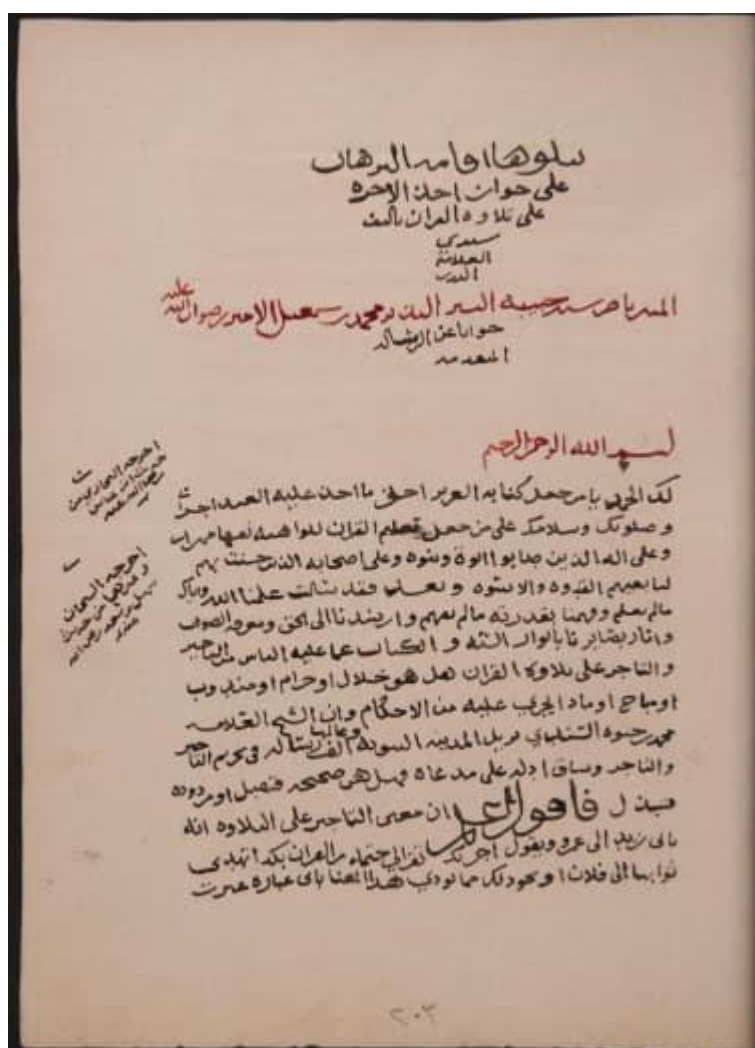 يتلوها اقامه البرهان
على جواز اخذ الاجره
على تلاوه القران تاليف
سيدي
العلامة
البدر
المنير ناصر سنه محمد بن اسمعيل الامير رضوان الله عليه
جوابا عن الرساله
المتقدمه
بسم الله الرحمن الرحيم
لك الحمد يا من جعل كتابه العزيز احق ما اخذ عليه العبد اجرا
وصلوتك وسلامك على من جعل تعليم القران للواهبه نفسها مهرا
وعلى اله الذين وعلى اصحابه الذين حسنت بهم
لتابعيهم القدوه والاسوه وبعد فقد سالت علمنا الله واياك
مالم نعلم وفهمنا بقدرته مالم نفهم وارشدنا الى الحق ومعرفه الصواب
وانار بصايرنا بانوار السنه والكتاب عما عليه الناس من التاجير
والتاجر على تلاوة القران هل هو حلال او حرام او مندوب
او مباح او ماذا يجري عليه من الاحكام وان الشيخ العلامه
محمد حيوه السندي نزيل المدينه النبويه وعالمها الف رساله في تحريم التاجير
والتاجر وساق ادله على مدعاه فهل هي صحيحه فتقبل او مردوده
فاقول اعلم ان معنى التاجير على التلاوه انه
ياتي زيد الى عمرو ويقول اجرتك تقرا لي ختمة من القران بكذا تهدي
ثوابها الى فلان او نحو ذلك مما يودي هذا المعنا باي عباره عبرت
اخرجه البخاري من
حديث ابن عباس
رضي الله عنه
اخرجه الشيخان
وغيرهما من حديث
سهل بن سعد رضي الله
عنه
٢٠٣